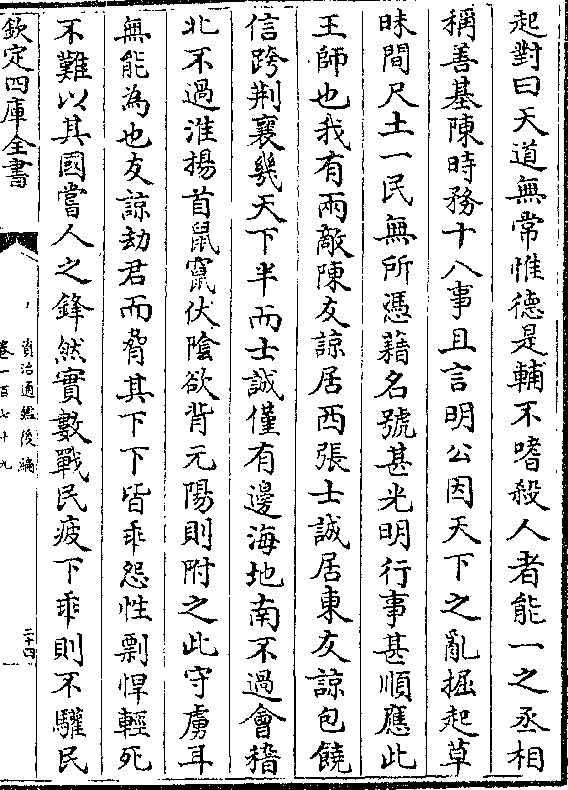 起對曰天道無常惟德是輔不嗜殺人者能一之丞相
稱善基陳時務十八事且言明公因天下之亂掘起草
昧間尺土一民無所憑藉名號甚光明行事甚順應此
王師也我有兩敵陳友諒居西張士誠居東友諒包饒
信跨荆襄幾天下半而士誠僅有邊海地南不過會稽
北不過淮揚首鼠竄伏陰欲背元陽則附之此守虜耳
無能為也友諒劫君而脅其下下皆乖怨性剽悍輕死
不難以其國嘗人之鋒然實數戰民疲下乖則不驩民
欽定四庫全書
資治通鑑後編
卷一百七十九
二十四